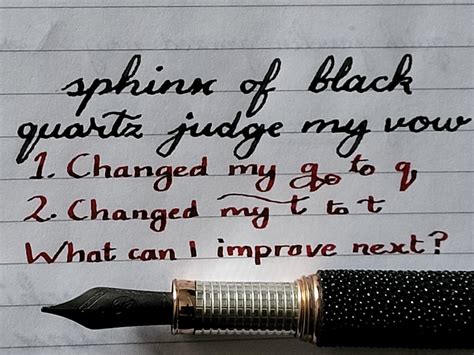 sphinx of black
quartz judge my vow
1. Changed my q to q
2. Changed my t to t
What can I improve next?